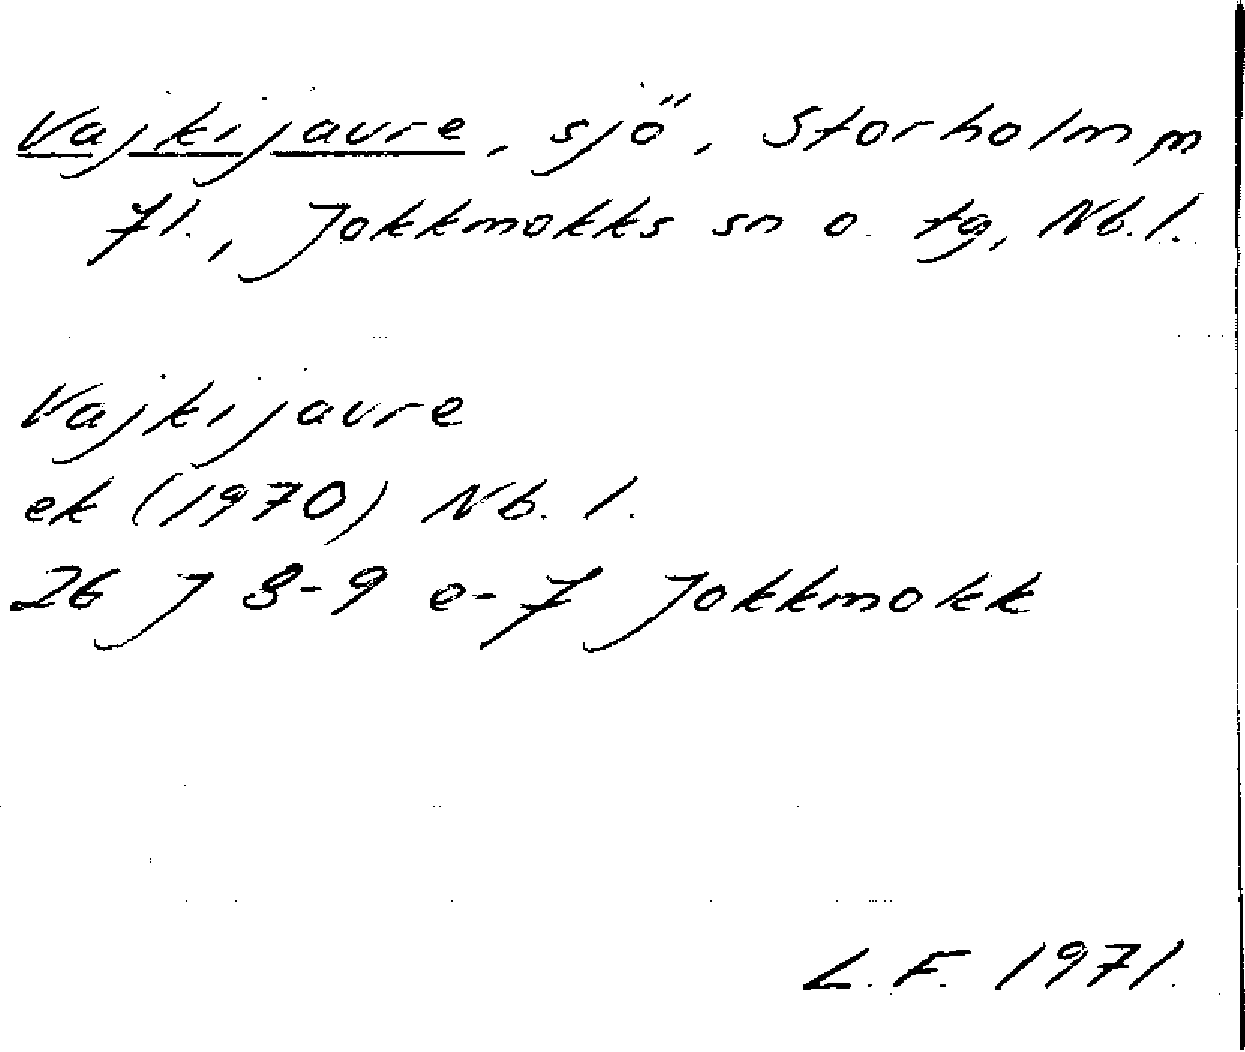 Vajkijaure, sjö, Storholm m
fl., Jokkmokks sn o. tg, Nb. l.
Vajkijaure
ek (1970) Nb. l.
26 J 8-9 e-f Jokkmokk
L. F. 1971.